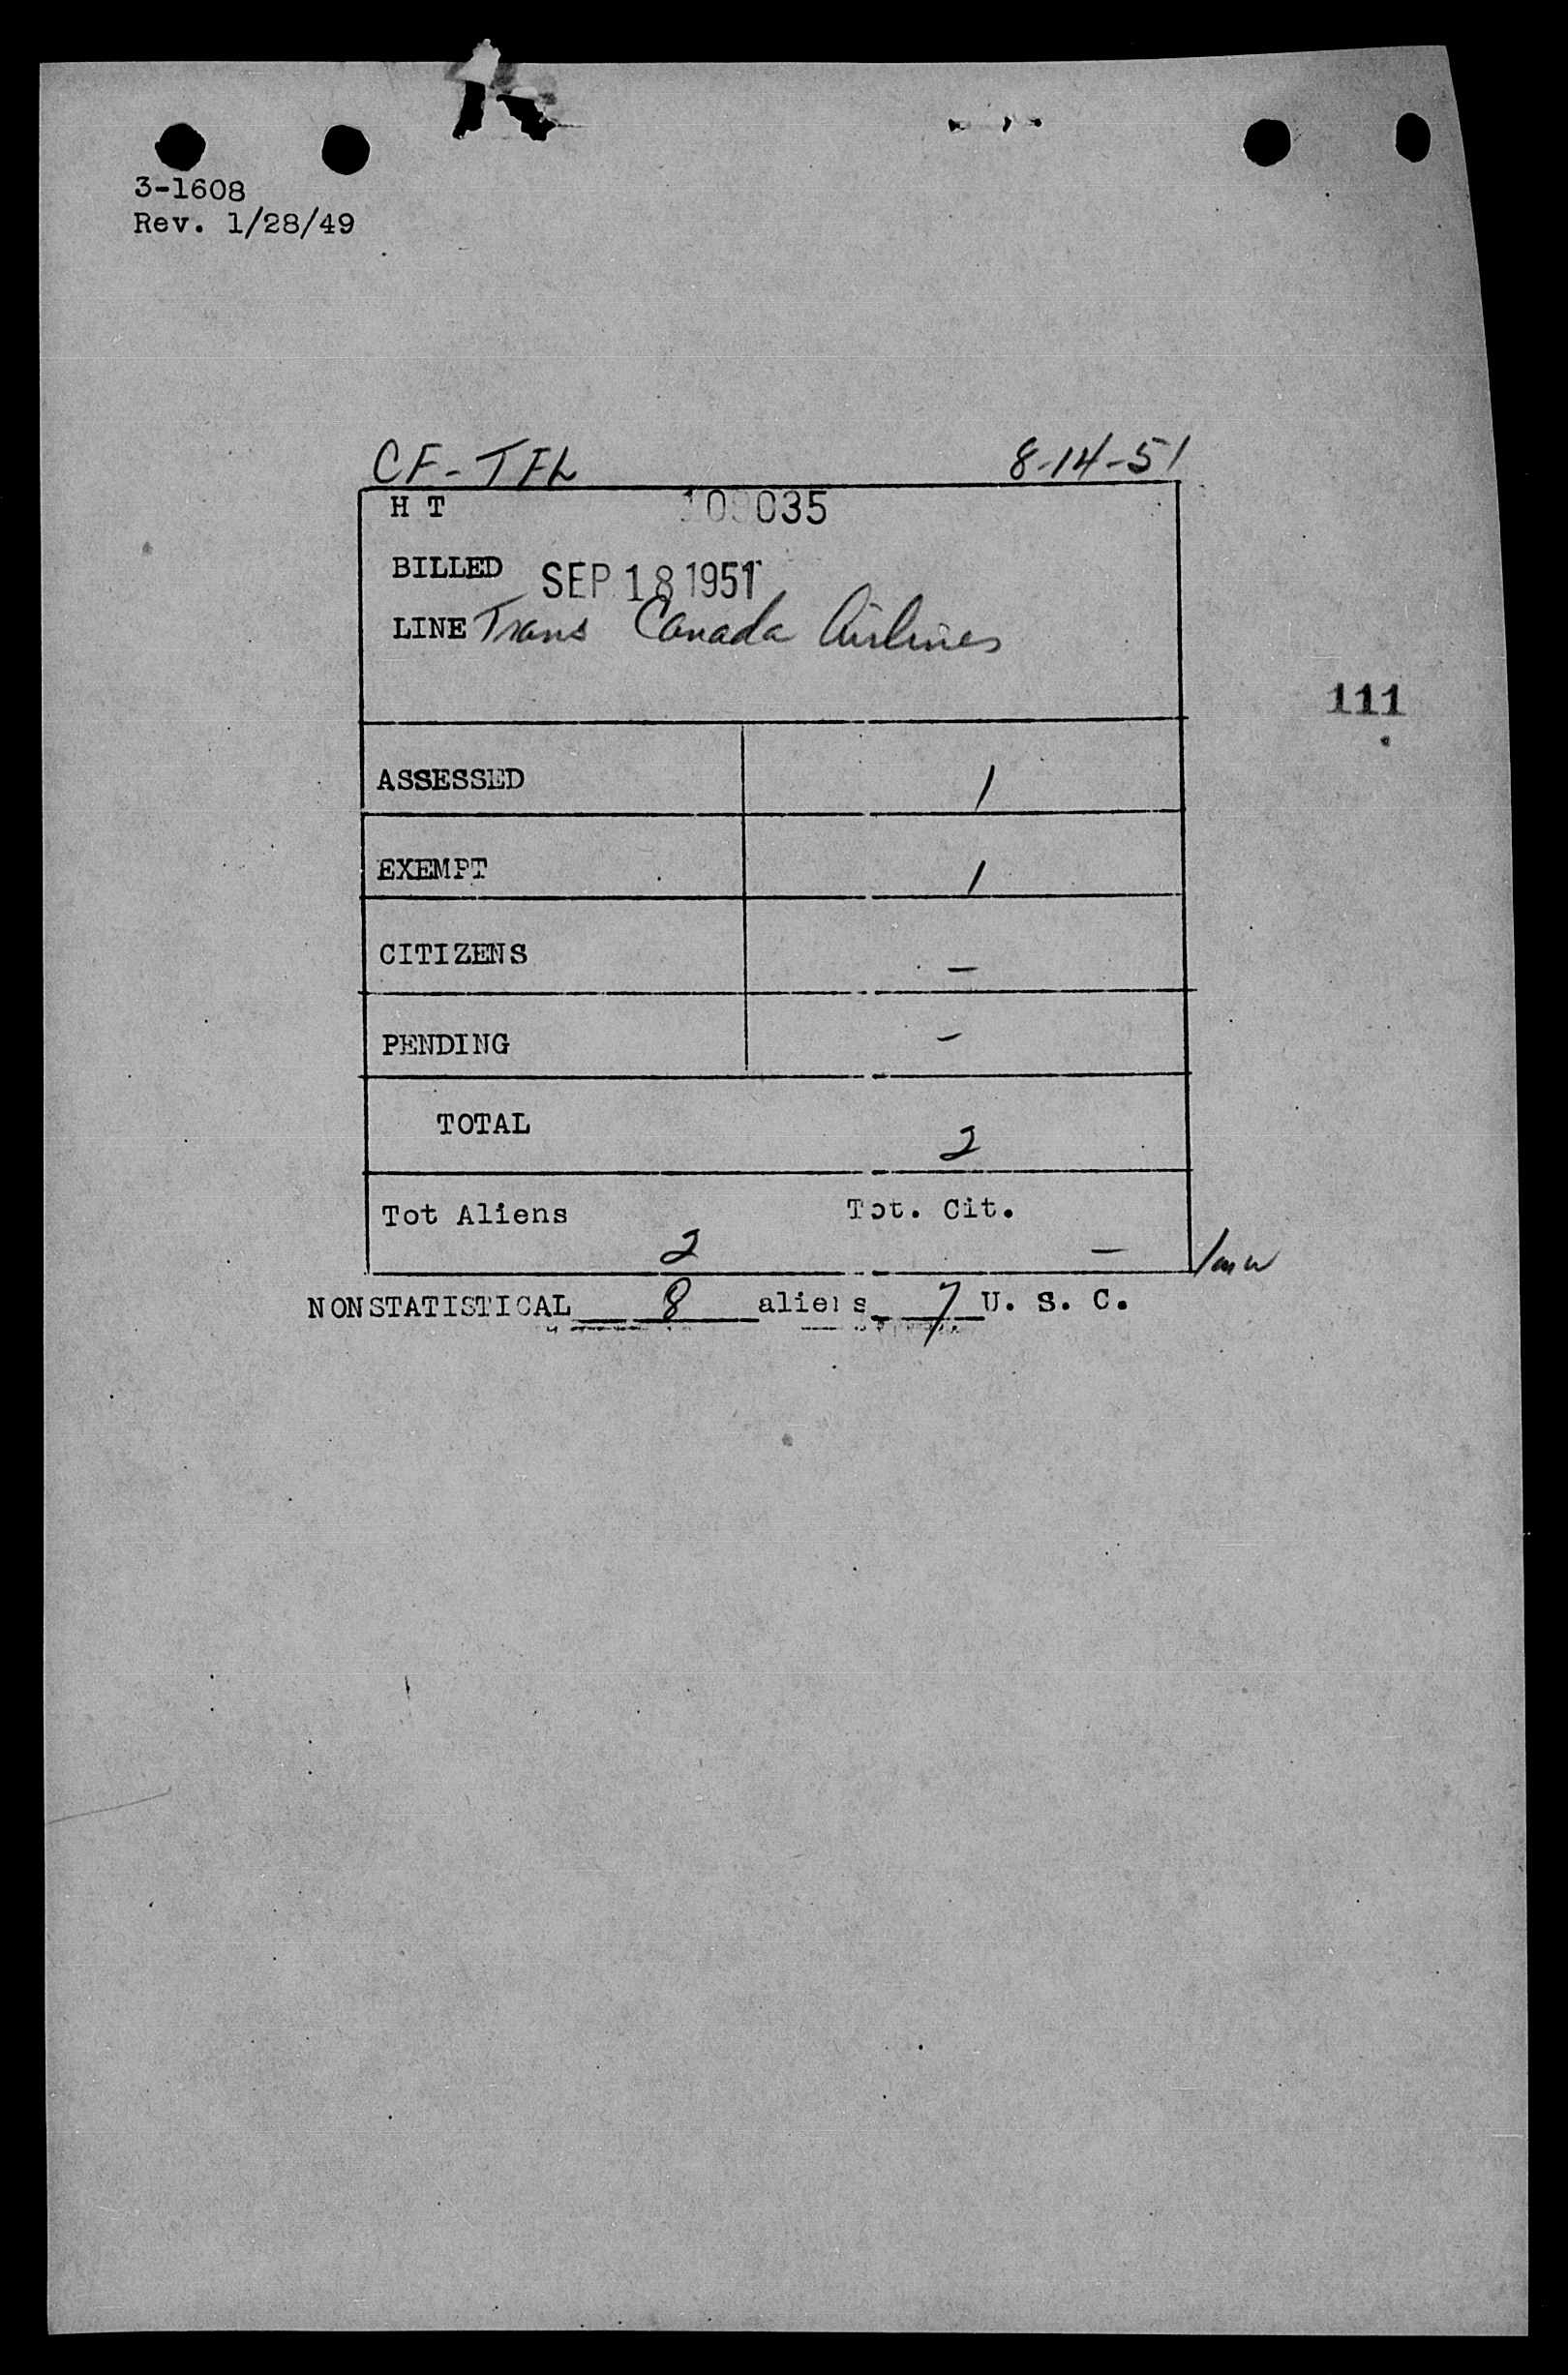 3-1608
Rev. 1/28/49
CF-TFL 8-14-51
H T 035
BILLED SEP 18 1951
LINE Trans Canada Airlines
111
ASSESSED 1
EXEMPT 1
CITIZENS -
PENDING -
TOTAL 2
Tot Aliens Tot. Cit.
2 -
NONSTATISTICAL 8 aliens 7 U. S. C.